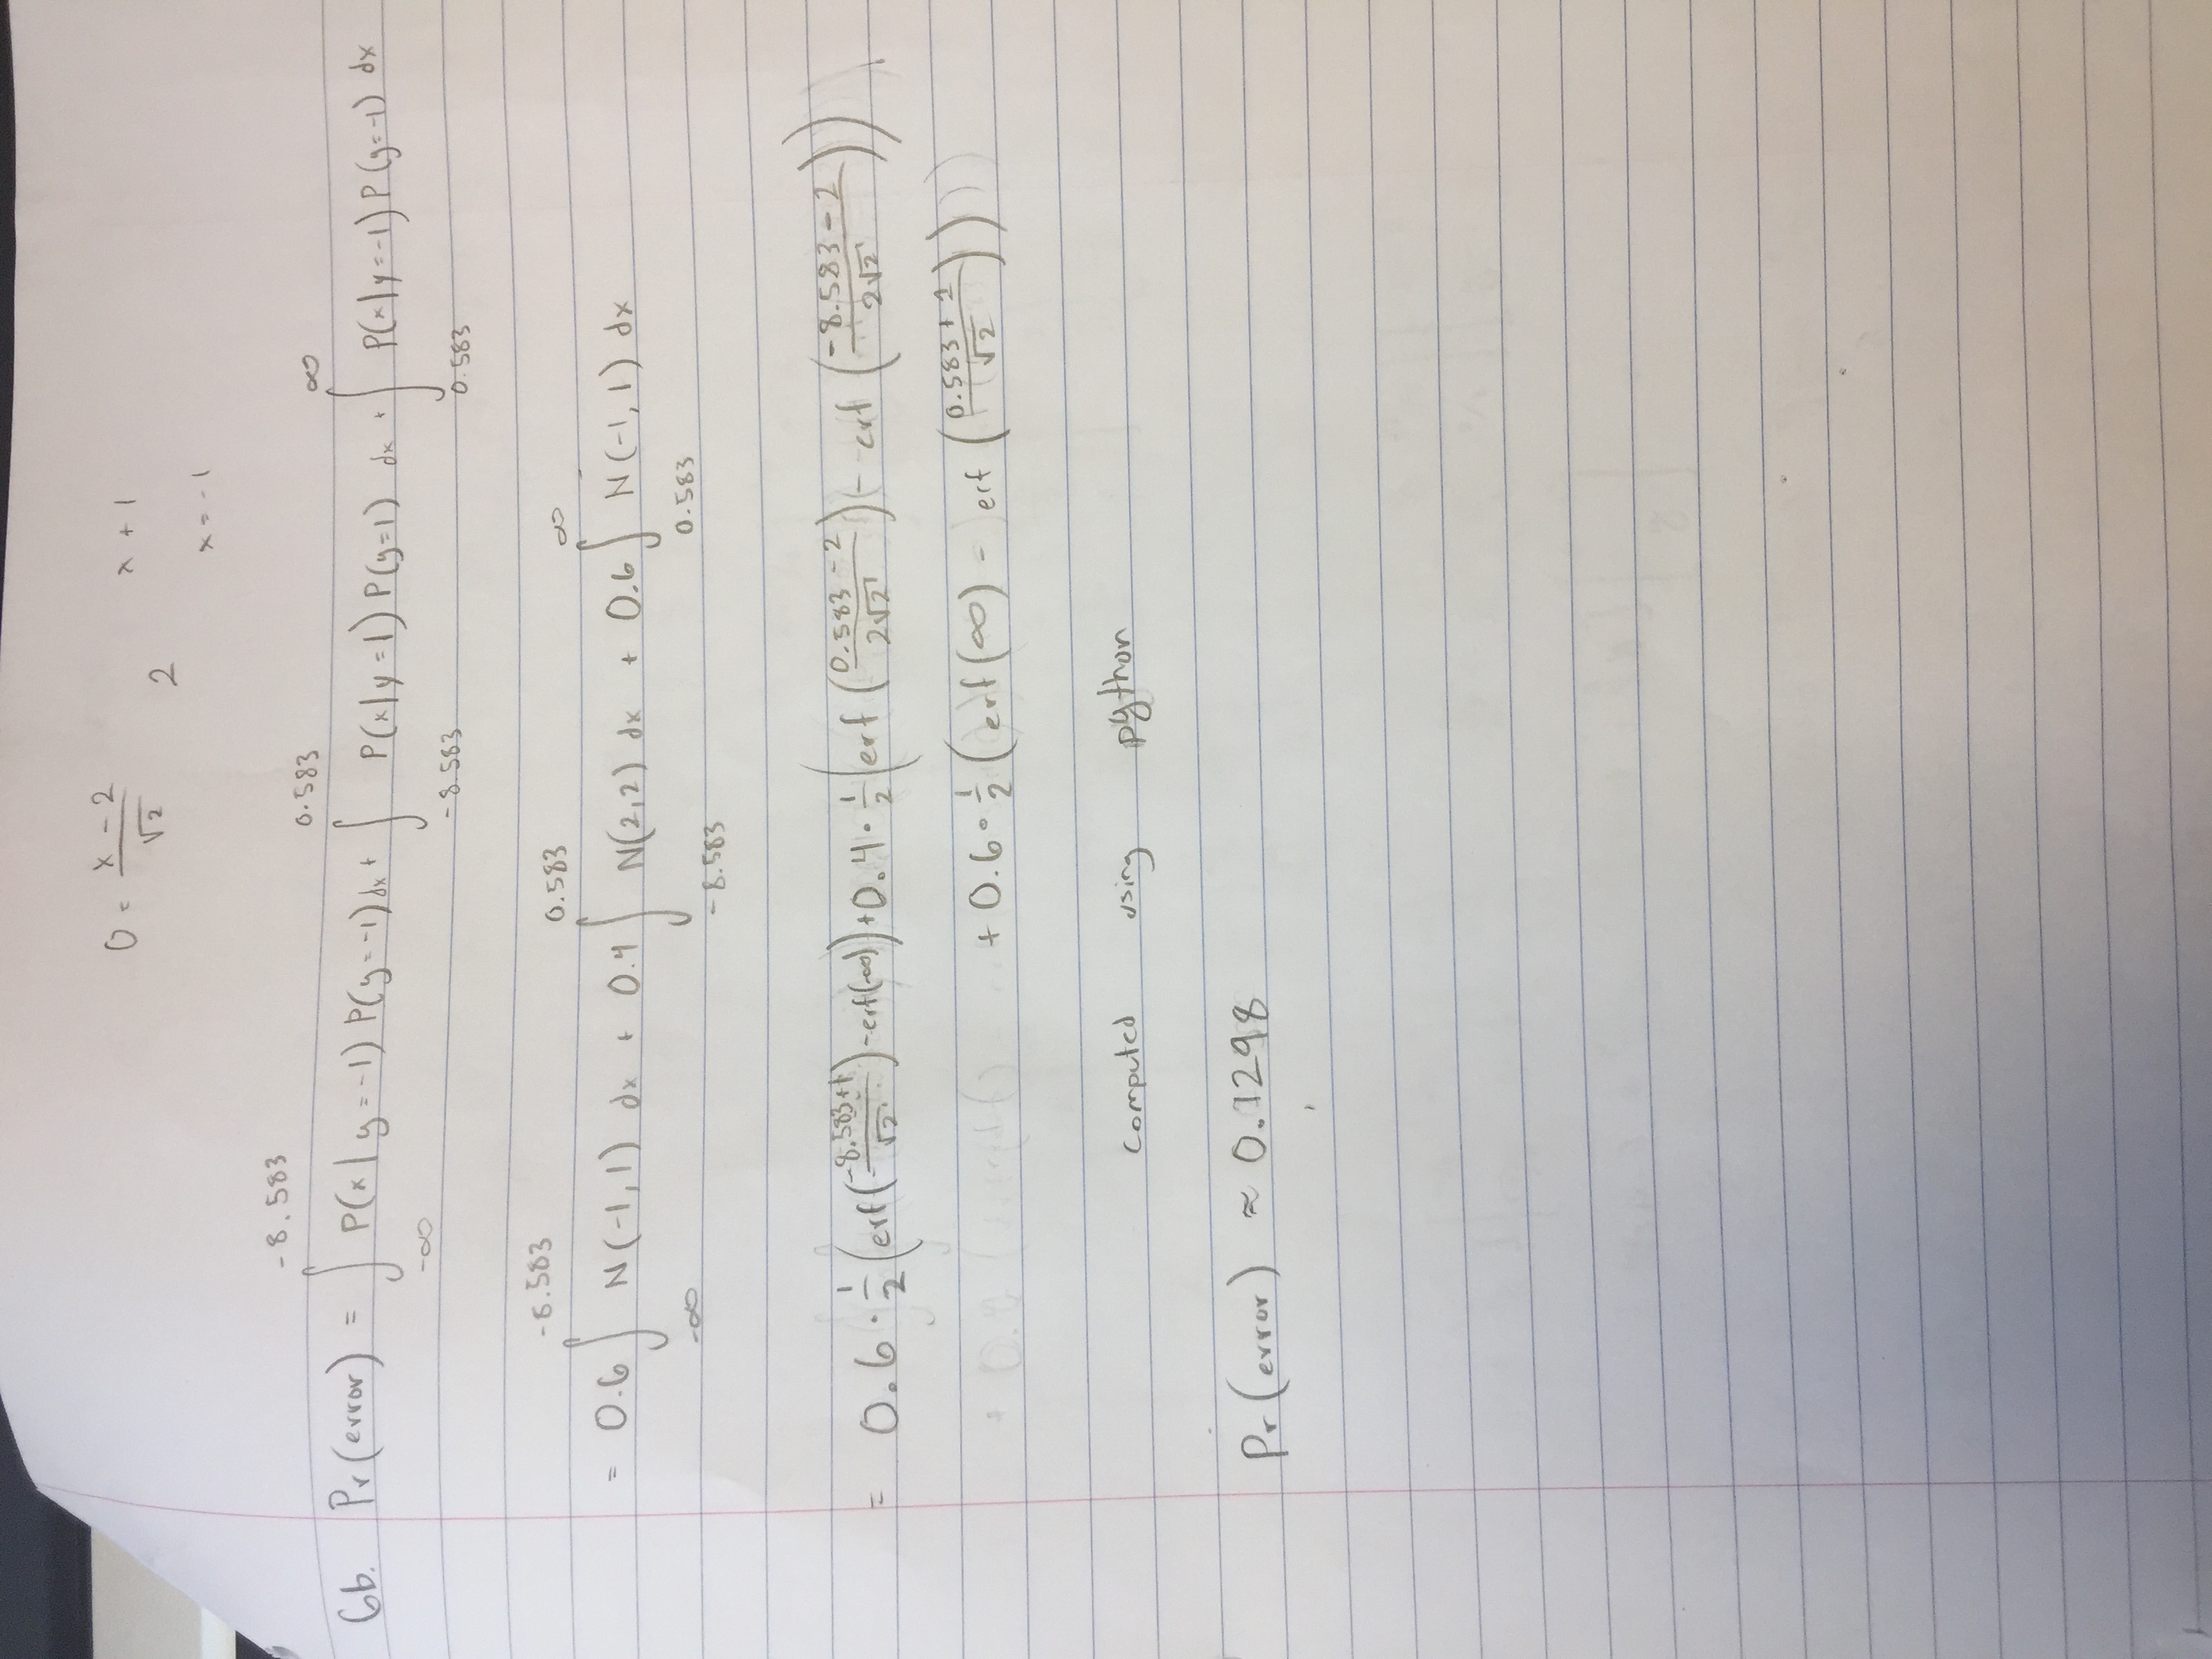 0 = (x - 2)/√2    2    x + 1
x = -1
6b. Pr(error) = ∫_{-∞}^{-8.583} P(x|y=-1) P(y=-1) dx + ∫_{-8.583}^{0.583} P(x|y=1) P(y=1) dx + ∫_{0.583}^{∞} P(x|y=-1) P(y=-1) dx
= 0.6 ∫_{-∞}^{-8.583} N(-1,1) dx + 0.4 ∫_{-8.583}^{0.583} N(2,2) dx + 0.6 ∫_{0.583}^{∞} N(-1,1) dx
= 0.6 · 1/2 (erf((-8.583+1)/√2) - erf(-∞)) + 0.4 · 1/2 (erf((0.583-2)/(2√2)) - erf((-8.583-2)/(2√2)))
+ 0.6 · 1/2 (erf(∞) - erf((0.583+1)/√2))
computed using python
Pr(error) ≈ 0.1298